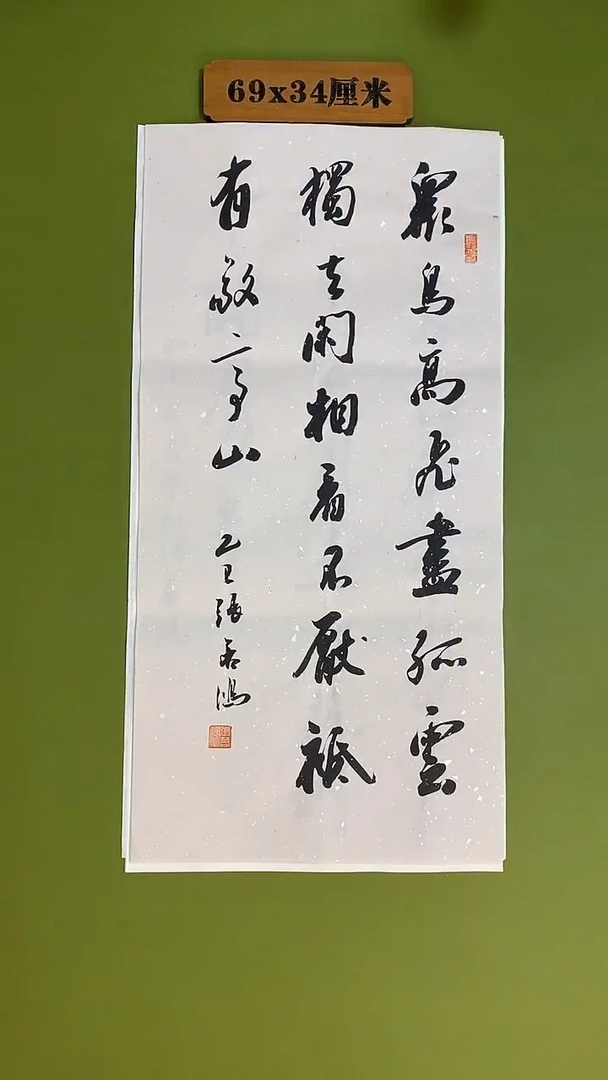 69x34厘米
衆鳥高飛盡孤雲
獨去閑相看不厭祗
有敬亭山
乙巳張君鴻